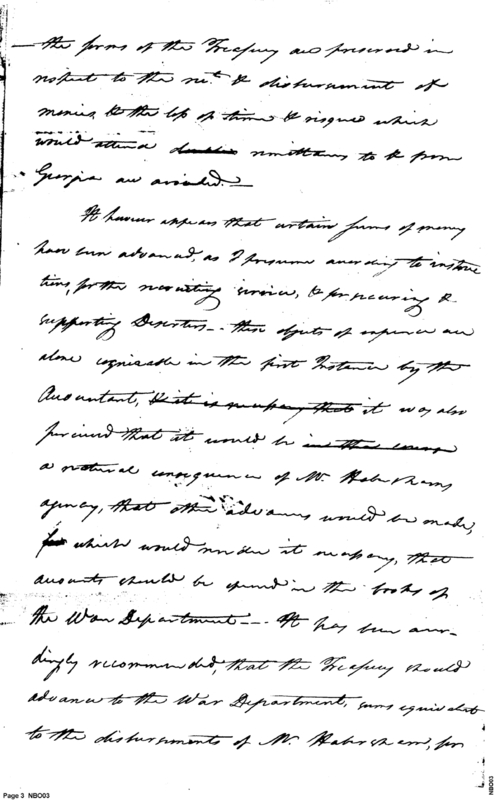 — the forms of the Treasury are preserved in
respect to the rect. & disbursement of
monies, & the loss of time & risque which
would attend double remittances to & from
Georgia are avoided. —
It however appears that certain sums of money
have been advanced, as I presume according to instruc
tions, for the recruiting service, & for securing &
supporting Deserters — these objects of expence are
alone cognizable in the first Instance by the
Accountant, & it is necessary that it was also
perceived that it would be
a natural consequence of Mr. Habershams
agency, that other advances would be made,
for which would render it necessary, that
accounts should be opened in the books of
the War Department — It has been accor-
dingly recommended, that the Treasury should
advance to the War Department, sums equivalent
to the disbursements of Mr. Habersham, for
Page 3 NBO03
NBO03